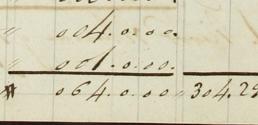 " 004.0.00.
" 001.0.00.
" 064.0.00 " 304.29